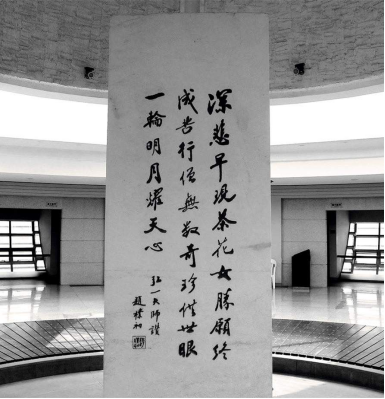 深悲早現茶花女勝願終
成苦行僧無數奇珍供世眼
一輪明月耀天心
弘一大師讚
趙樸初